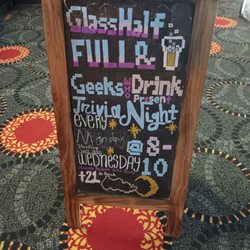 GlassHalf
FULL &
Geeks who Drink
Present
Trivia Night
EVERY
Monday
WEDNESDAY
@ 8-
10
+21 to Drink